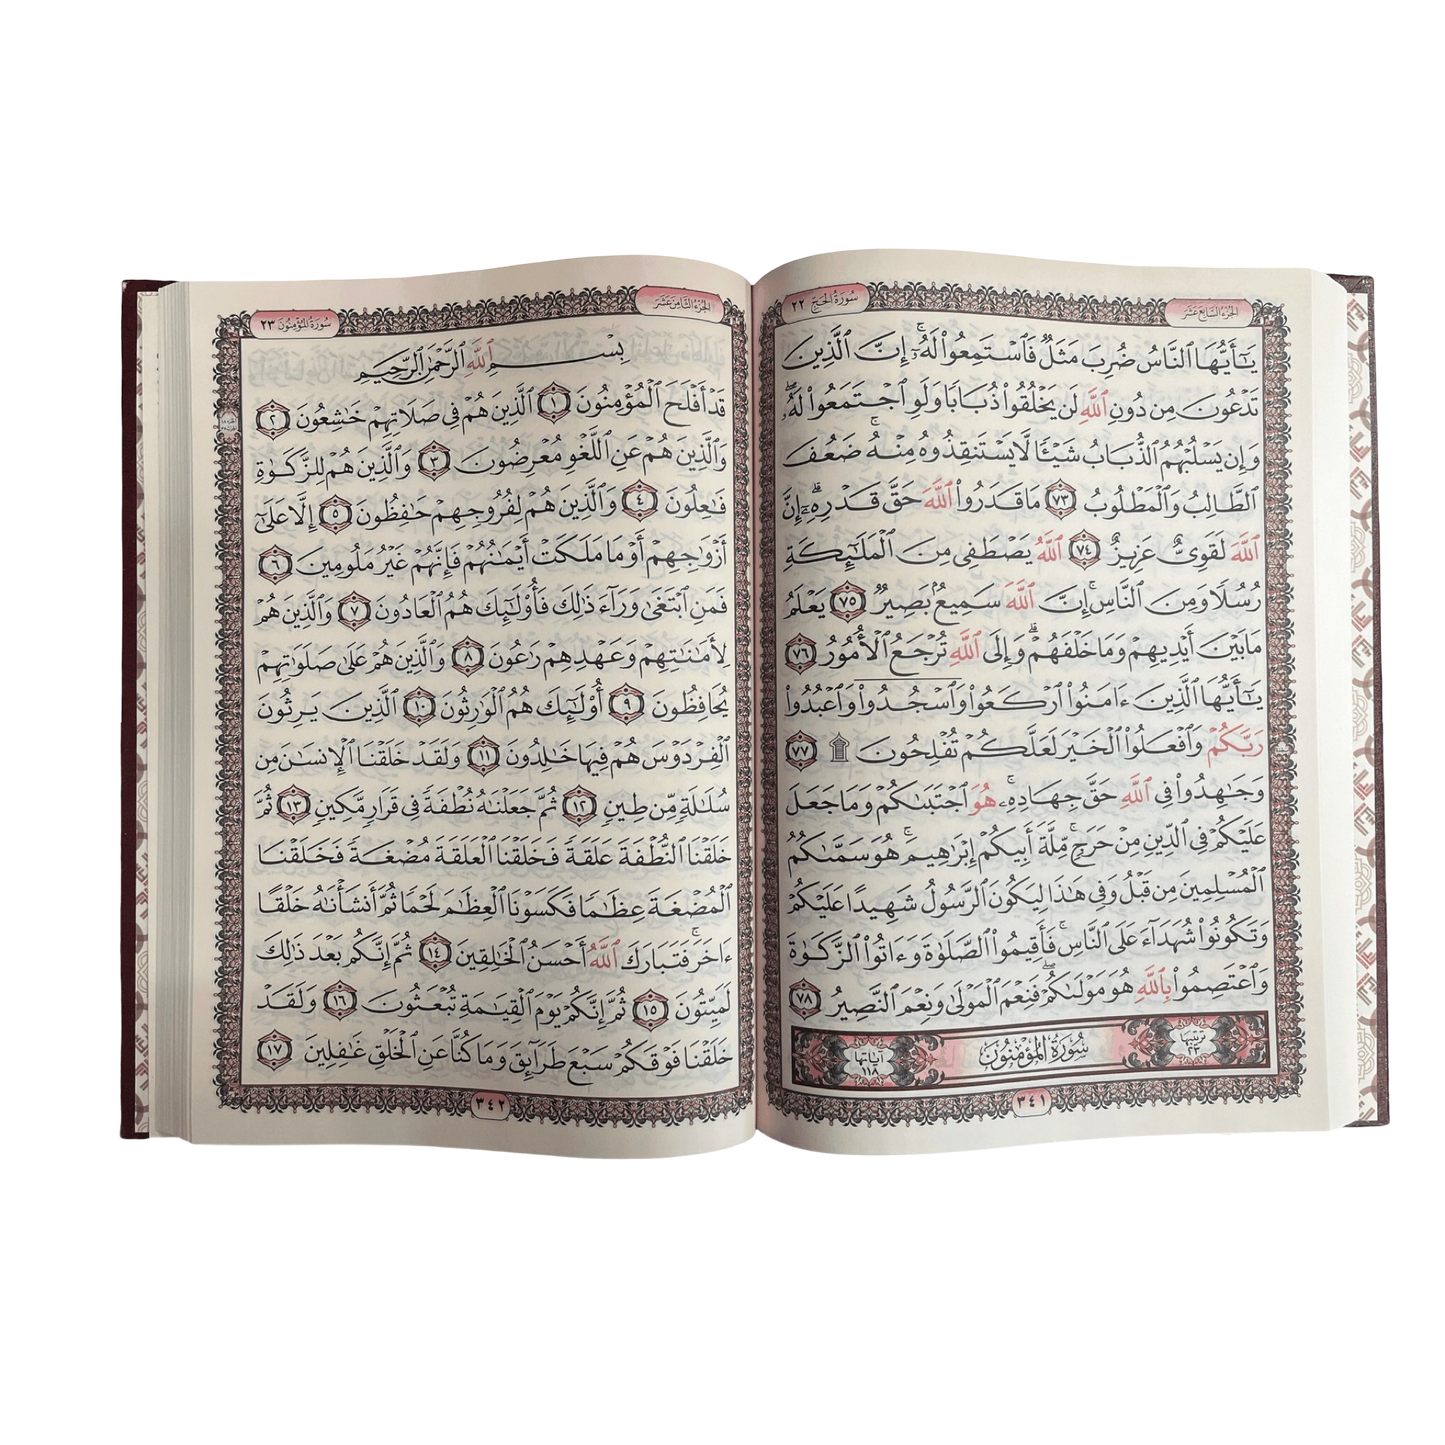 الجزء السابع عشر
سورة الحج ٢٢
يَٰٓأَيُّهَا ٱلنَّاسُ ضُرِبَ مَثَلٌ فَٱسْتَمِعُوا۟ لَهُۥٓ ۚ إِنَّ ٱلَّذِينَ
تَدْعُونَ مِن دُونِ ٱللَّهِ لَن يَخْلُقُوا۟ ذُبَابًا وَلَوِ ٱجْتَمَعُوا۟ لَهُۥ ۖ
وَإِن يَسْلُبْهُمُ ٱلذُّبَابُ شَيْـًٔا لَّا يَسْتَنقِذُوهُ مِنْهُ ۚ ضَعُفَ
ٱلطَّالِبُ وَٱلْمَطْلُوبُ ٧٣ مَا قَدَرُوا۟ ٱللَّهَ حَقَّ قَدْرِهِۦٓ ۗ إِنَّ
ٱللَّهَ لَقَوِىٌّ عَزِيزٌ ٧٤ ٱللَّهُ يَصْطَفِى مِنَ ٱلْمَلَٰٓئِكَةِ
رُسُلًا وَمِنَ ٱلنَّاسِ ۚ إِنَّ ٱللَّهَ سَمِيعٌۢ بَصِيرٌ ٧٥ يَعْلَمُ
مَا بَيْنَ أَيْدِيهِمْ وَمَا خَلْفَهُمْ ۗ وَإِلَى ٱللَّهِ تُرْجَعُ ٱلْأُمُورُ ٧٦
يَٰٓأَيُّهَا ٱلَّذِينَ ءَامَنُوا۟ ٱرْكَعُوا۟ وَٱسْجُدُوا۟ وَٱعْبُدُوا۟
رَبَّكُمْ وَٱفْعَلُوا۟ ٱلْخَيْرَ لَعَلَّكُمْ تُفْلِحُونَ ۩ ٧٧
وَجَٰهِدُوا۟ فِى ٱللَّهِ حَقَّ جِهَادِهِۦ ۚ هُوَ ٱجْتَبَىٰكُمْ وَمَا جَعَلَ
عَلَيْكُمْ فِى ٱلدِّينِ مِنْ حَرَجٍ ۚ مِّلَّةَ أَبِيكُمْ إِبْرَٰهِيمَ ۚ هُوَ سَمَّىٰكُمُ
ٱلْمُسْلِمِينَ مِن قَبْلُ وَفِى هَٰذَا لِيَكُونَ ٱلرَّسُولُ شَهِيدًا عَلَيْكُمْ
وَتَكُونُوا۟ شُهَدَآءَ عَلَى ٱلنَّاسِ ۚ فَأَقِيمُوا۟ ٱلصَّلَوٰةَ وَءَاتُوا۟ ٱلزَّكَوٰةَ
وَٱعْتَصِمُوا۟ بِٱللَّهِ هُوَ مَوْلَىٰكُمْ ۖ فَنِعْمَ ٱلْمَوْلَىٰ وَنِعْمَ ٱلنَّصِيرُ ٧٨
ترتيبها ٢٣ سورة المؤمنون آياتها ١١٨
٣٤١
الجزء الثامن عشر
سورة المؤمنون ٢٣
بِسْمِ ٱللَّهِ ٱلرَّحْمَٰنِ ٱلرَّحِيمِ
قَدْ أَفْلَحَ ٱلْمُؤْمِنُونَ ١ ٱلَّذِينَ هُمْ فِى صَلَاتِهِمْ خَٰشِعُونَ ٢
وَٱلَّذِينَ هُمْ عَنِ ٱللَّغْوِ مُعْرِضُونَ ٣ وَٱلَّذِينَ هُمْ لِلزَّكَوٰةِ
فَٰعِلُونَ ٤ وَٱلَّذِينَ هُمْ لِفُرُوجِهِمْ حَٰفِظُونَ ٥ إِلَّا عَلَىٰٓ
أَزْوَٰجِهِمْ أَوْ مَا مَلَكَتْ أَيْمَٰنُهُمْ فَإِنَّهُمْ غَيْرُ مَلُومِينَ ٦
فَمَنِ ٱبْتَغَىٰ وَرَآءَ ذَٰلِكَ فَأُو۟لَٰٓئِكَ هُمُ ٱلْعَادُونَ ٧ وَٱلَّذِينَ هُمْ
لِأَمَٰنَٰتِهِمْ وَعَهْدِهِمْ رَٰعُونَ ٨ وَٱلَّذِينَ هُمْ عَلَىٰ صَلَوَٰتِهِمْ
يُحَافِظُونَ ٩ أُو۟لَٰٓئِكَ هُمُ ٱلْوَٰرِثُونَ ١٠ ٱلَّذِينَ يَرِثُونَ
ٱلْفِرْدَوْسَ هُمْ فِيهَا خَٰلِدُونَ ١١ وَلَقَدْ خَلَقْنَا ٱلْإِنسَٰنَ مِن
سُلَٰلَةٍ مِّن طِينٍ ١٢ ثُمَّ جَعَلْنَٰهُ نُطْفَةً فِى قَرَارٍ مَّكِينٍ ١٣ ثُمَّ
خَلَقْنَا ٱلنُّطْفَةَ عَلَقَةً فَخَلَقْنَا ٱلْعَلَقَةَ مُضْغَةً فَخَلَقْنَا
ٱلْمُضْغَةَ عِظَٰمًا فَكَسَوْنَا ٱلْعِظَٰمَ لَحْمًا ثُمَّ أَنشَأْنَٰهُ خَلْقًا
ءَاخَرَ ۚ فَتَبَارَكَ ٱللَّهُ أَحْسَنُ ٱلْخَٰلِقِينَ ١٤ ثُمَّ إِنَّكُم بَعْدَ ذَٰلِكَ
لَمَيِّتُونَ ١٥ ثُمَّ إِنَّكُمْ يَوْمَ ٱلْقِيَٰمَةِ تُبْعَثُونَ ١٦ وَلَقَدْ
خَلَقْنَا فَوْقَكُمْ سَبْعَ طَرَآئِقَ وَمَا كُنَّا عَنِ ٱلْخَلْقِ غَٰفِلِينَ ١٧
٣٤٢